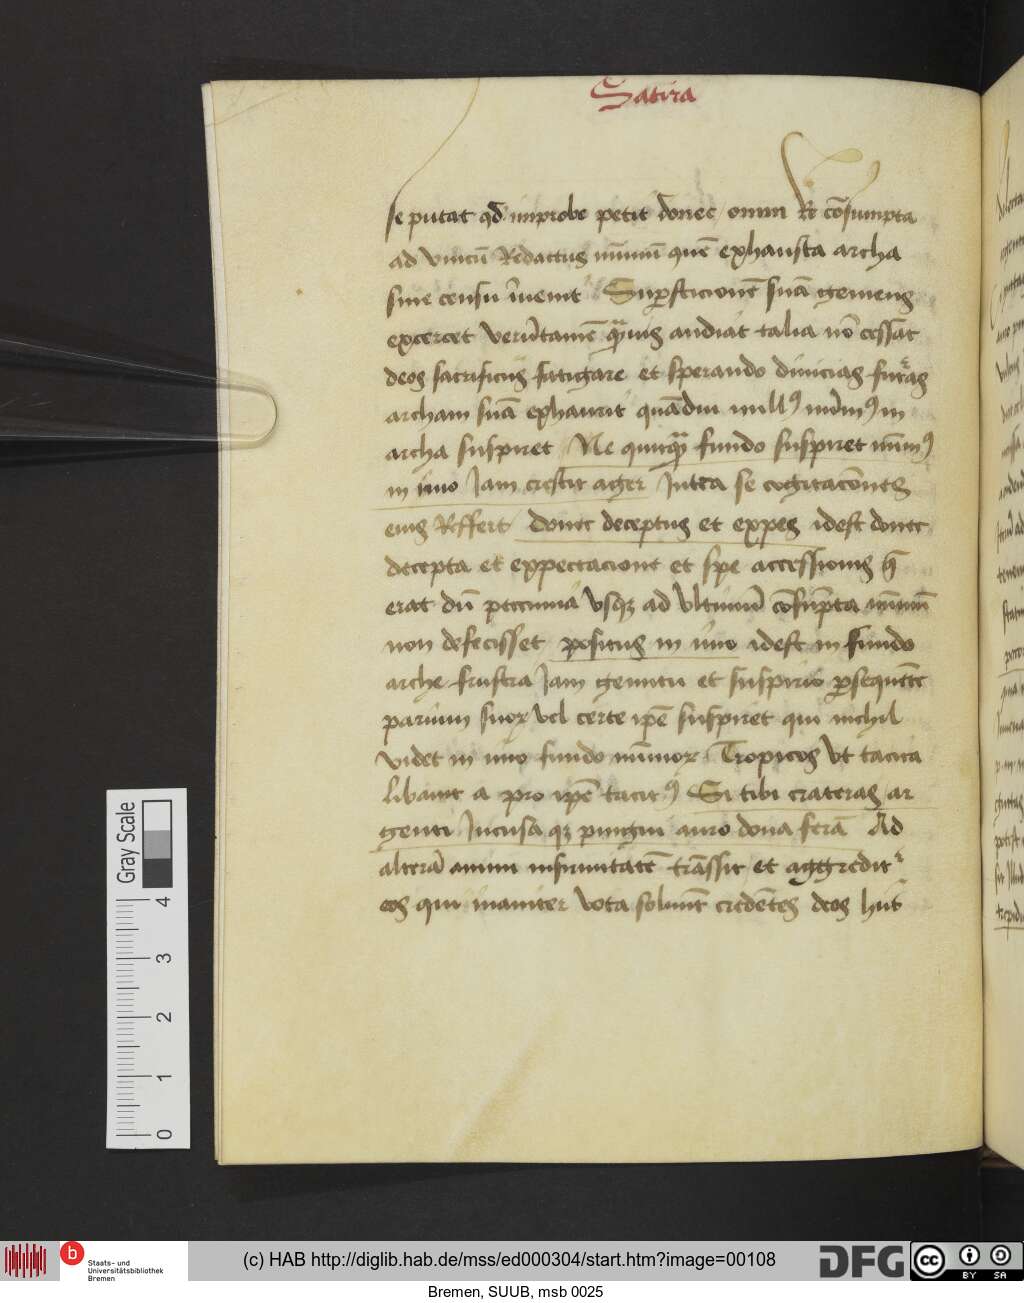 Satira
se putat qd improbe petit donec omni Re cōsumpta
ad vnicū Redactus nūmū quē exhausta archa
sine censu īuenit Suꝑsticionē suā gemens
excercet verūtamē quāuis audiat talia nō cessat
deos sacrificijs fatigare et sperando diuicias futuras
archam suā exhaurit quādiu nullꝰ nūmꝰ in
archa suspiret Ne quicquā fundo suspiret nūmꝰ
in imo Jam crescit ager Juxta se cogitacōnes
eius Reffert donec deceptus et expes idest donec
decepta et expectacione et spe accessionis que
erat dū peccunia vsqꝫ ad vltimū cōsūpta nūmū
non defecisset positus in imo idest in fundo
arche frustra Jam gemitu et suspirio ꝑsequētē
parium suoꝝ vel certe ipē suspiret qui nichil
videt in imo fundo nūmoꝝ Tropicos vt tacita
libauit a pro ipē tacitꝰ Si tibi crateras ar
genti Jncusa qꝫ pingui auro dona ferā Ad
alterā animi infirmitatē trāssit et aggredit᷑
eos qui inaniter vota soluūt credētes deos hūt
Gray Scale
4
3
2
1
0
b
Staats- und
Universitätsbibliothek
Bremen
(c) HAB http://diglib.hab.de/mss/ed000304/start.htm?image=00108
DFG
cc
BY SA
Bremen, SUUB, msb 0025